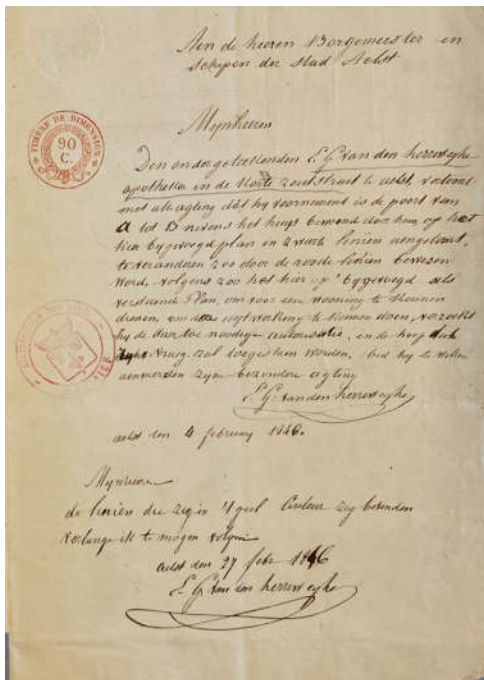 Aen de heeren Borgemeester en
Schepen der stad Aelst
TIMBRE DE DIMENSION
90
C.
Mynheeren
Den ondergeteekenden L. G. van den herreweghe
apotheker in de korte zoutstraet te aelst, vertoont
met alle agting dat hy voornement is de poort van
A tot B nevens het huys bewoond door hem op het
hier bygevoegd plan in zwarte linien aengetoont,
te veranderen zoo door de roode linien bewesen
word, volgens zoo het hier op bygevoegd
plan, om voor een wooning te konnen
dienen, om de uytwerking te konnen doen, verzoekt
hy de daer toe noodige autorisatie, en de hoop dat
zyne vraeg zal toegestaen worden, bid hy te willen
aenveerden zyne bezondere agting
L. G. van den herreweghe
aelst den 4 february 1846.
Mynheeren
de linien die zig in 't geel Couleur zig bevinden
verlange ik te mogen volgen
aelst den 27 febr 1846
L. G. van den herreweghe